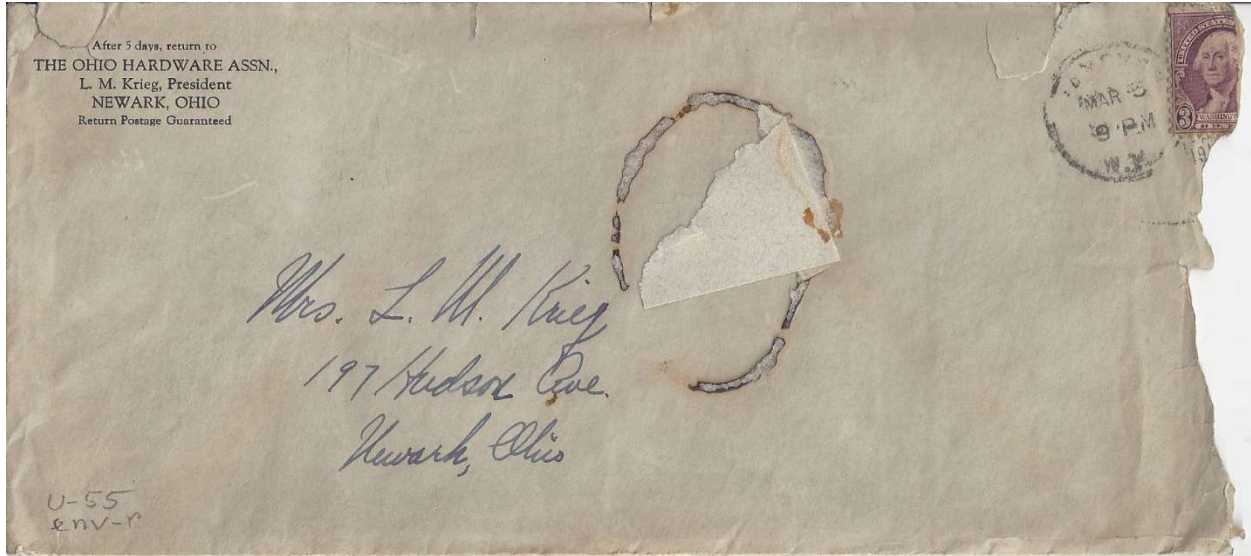 After 5 days, return to
THE OHIO HARDWARE ASSN.,
L. M. Krieg, President
NEWARK, OHIO
Return Postage Guaranteed
UNITED STATES
MAR 5
9 PM
N.Y.
3
Mrs. L. M. Krieg
197 Hudson Ave.
Newark, Ohio
U-55
env-r